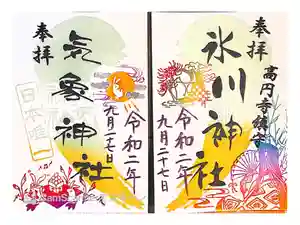 奉拝
高円寺鎮守
氷川神社
令和二年
九月二十七日
奉拝
気象神社
日本唯一
令和二年
九月二十七日